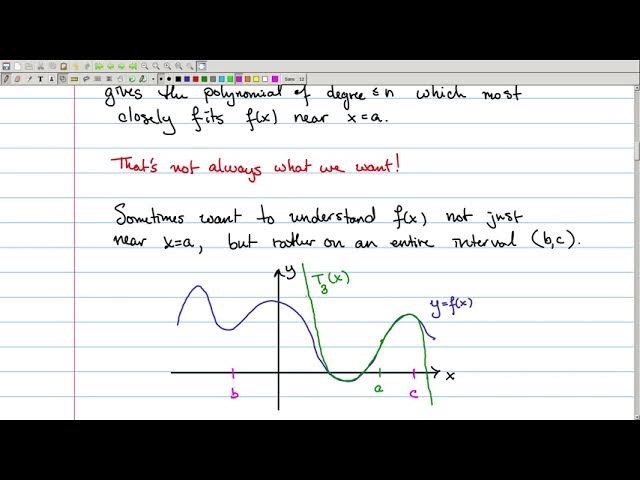 gives the polynomial of degree ≤ n which most
closely fits f(x) near x=a.
That's not always what we want!
Sometimes want to understand f(x) not just
near x=a, but rather on an entire interval (b,c).
y
T₃(x)
y=f(x)
x
b
a
c